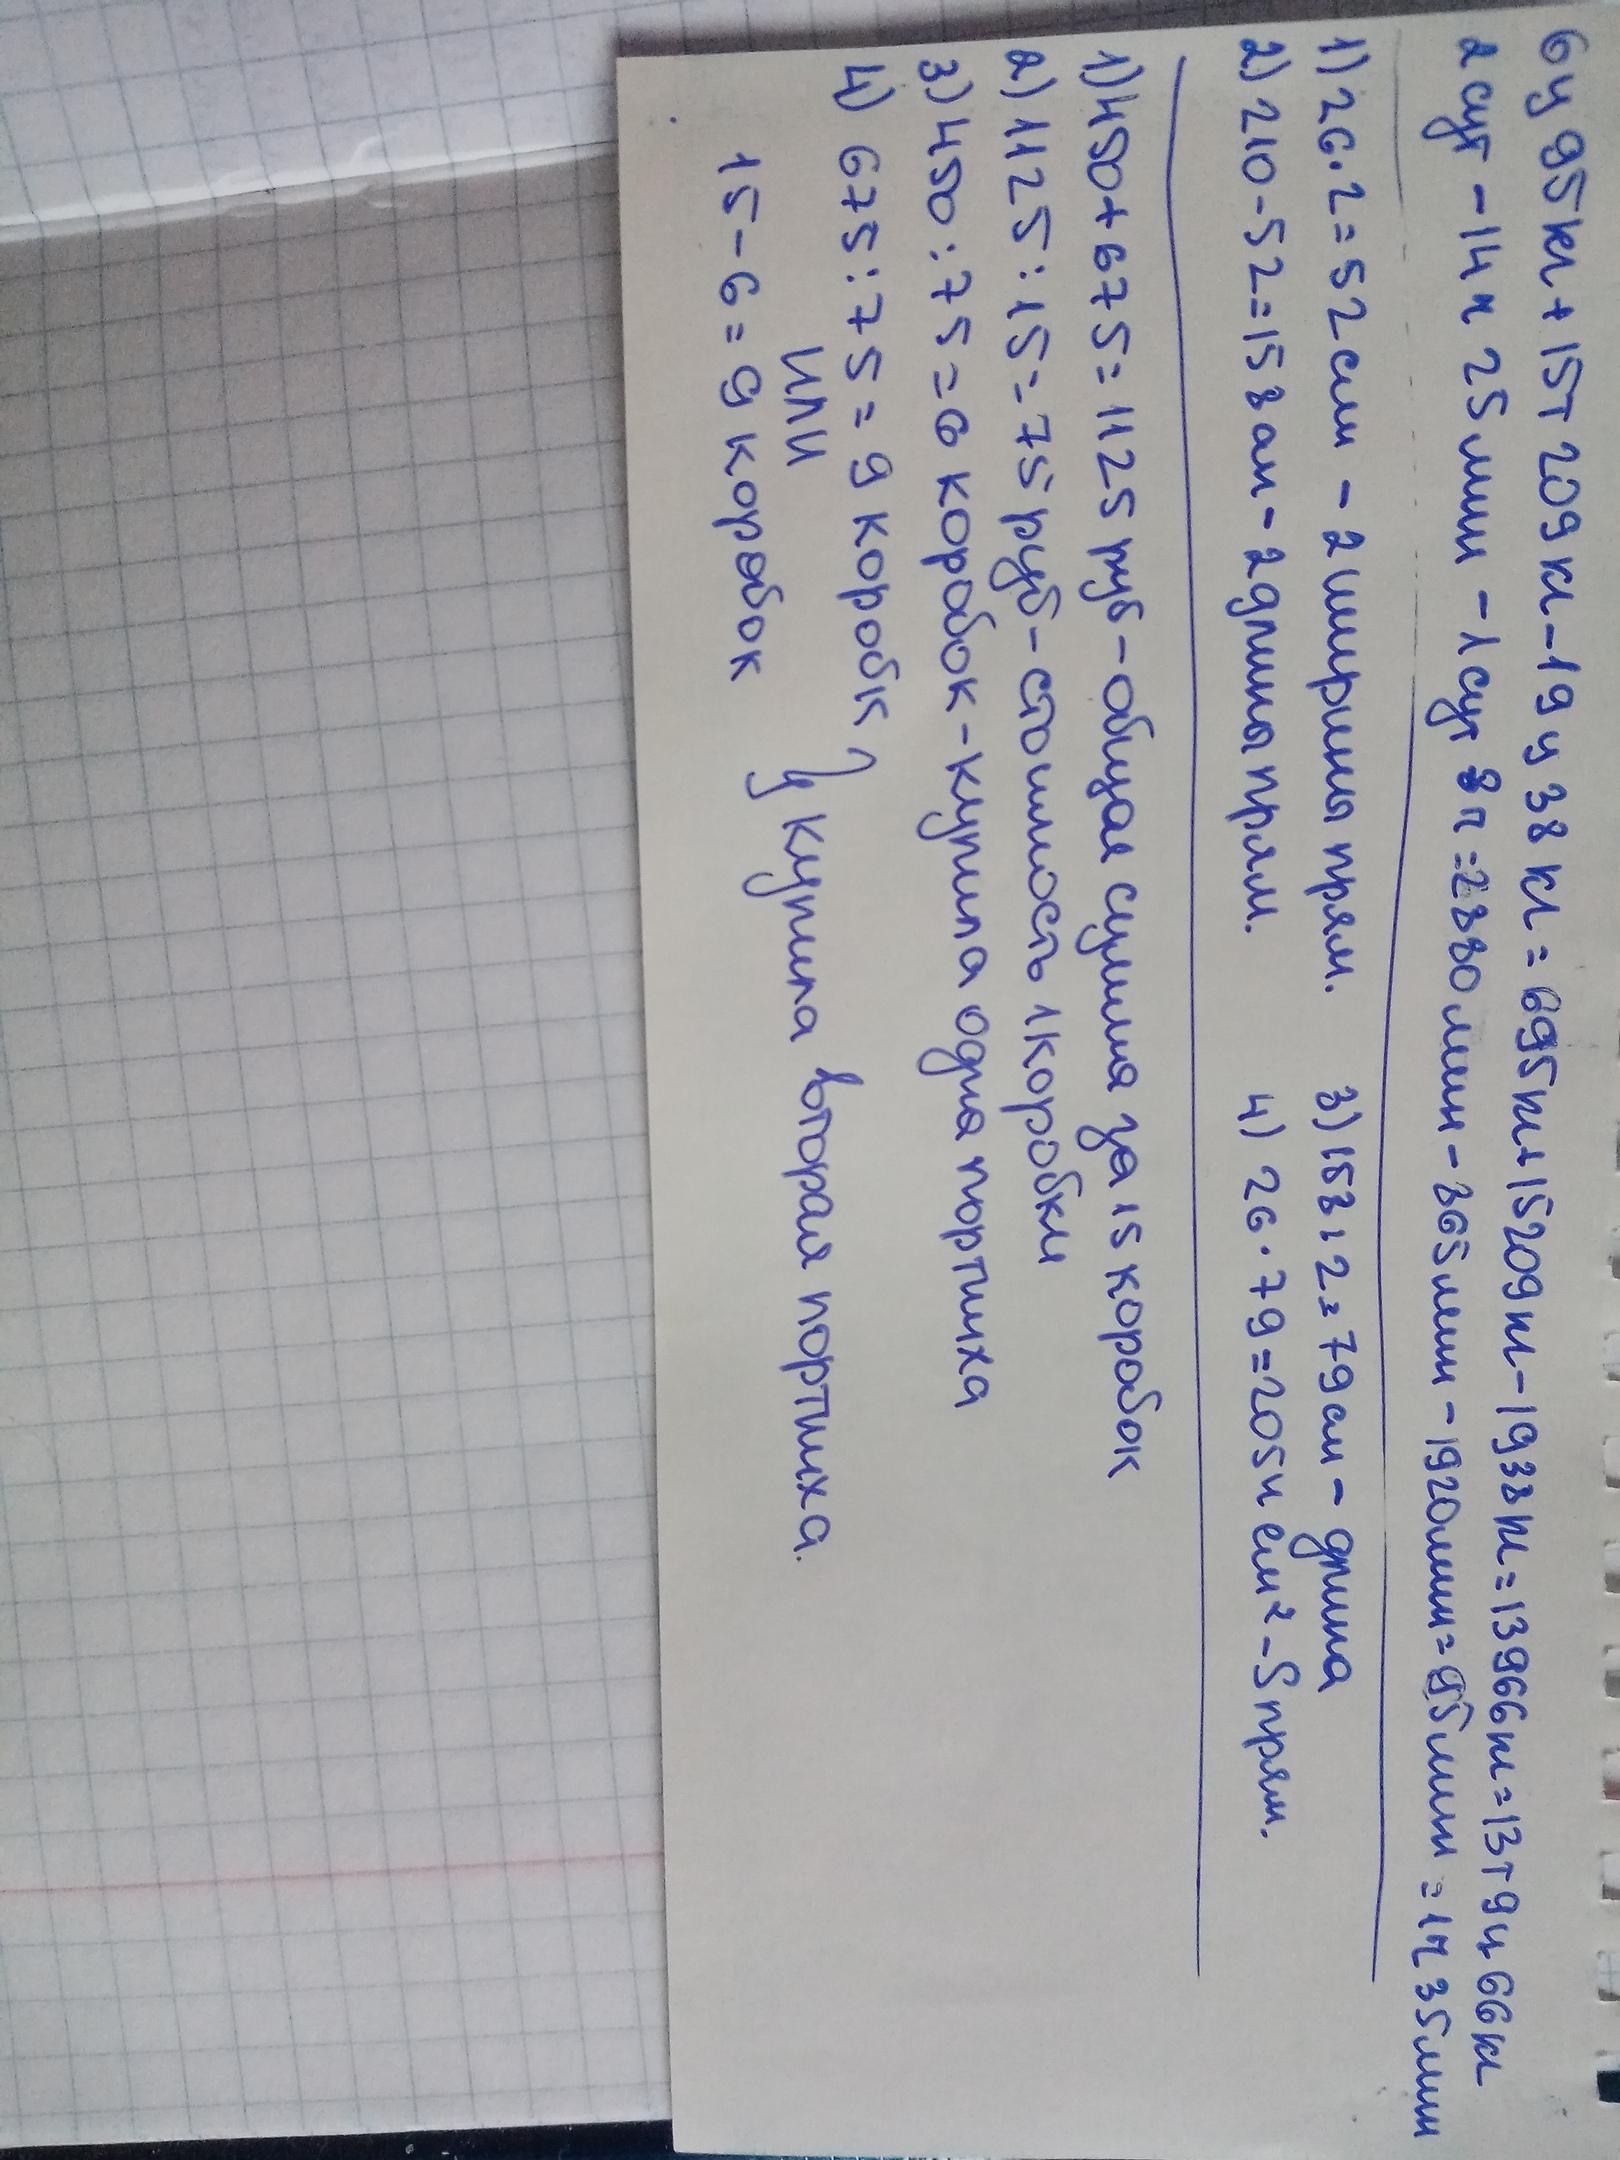 6ц 95кг+15т 209кг-19ц 38кг=695кг+15209кг-1938кг=13966кг=13т9ц66кг
2сут-14ч 25мин-1сут 8ч=2880мин-865мин-1920мин=95мин=1ч35мин
1) 26·2=52см-2ширины прям.
2) 210-52=158см-2длины прям.
3) 158:2=79см-длина
4) 26·79=2054см²-Sпрям.
1) 450+675=1125руб-общая сумма за 15 коробок
2) 1125:15=75руб-стоимость 1коробки
3) 450:75=6 коробок-купила одна портниха
4) 675:75=9 коробк
или
15-6=9 коробок
} купила вторая портниха.